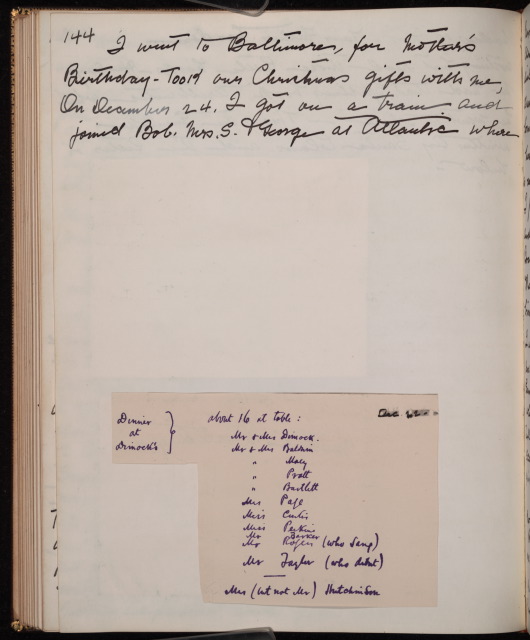 144 I went to Baltimore, for Mother's
Birthday - Took our Christmas gifts with me,
On December 24. I got on a train and
joined Bob. Mrs. S. & George at Atlantic where
Dinner
at
Dimock's
about 16 at table:
Mr & Mrs Dimock.
Mr & Mrs Baldwin
" Macy
" Pratt
" Bartlett
Mrs Page
Miss Curtis
Miss Perkins
Mr Barker
Mr Rogers (who sang)
Mr Taylor (who didnt)
Mrs (but not Mr) Hutchinson